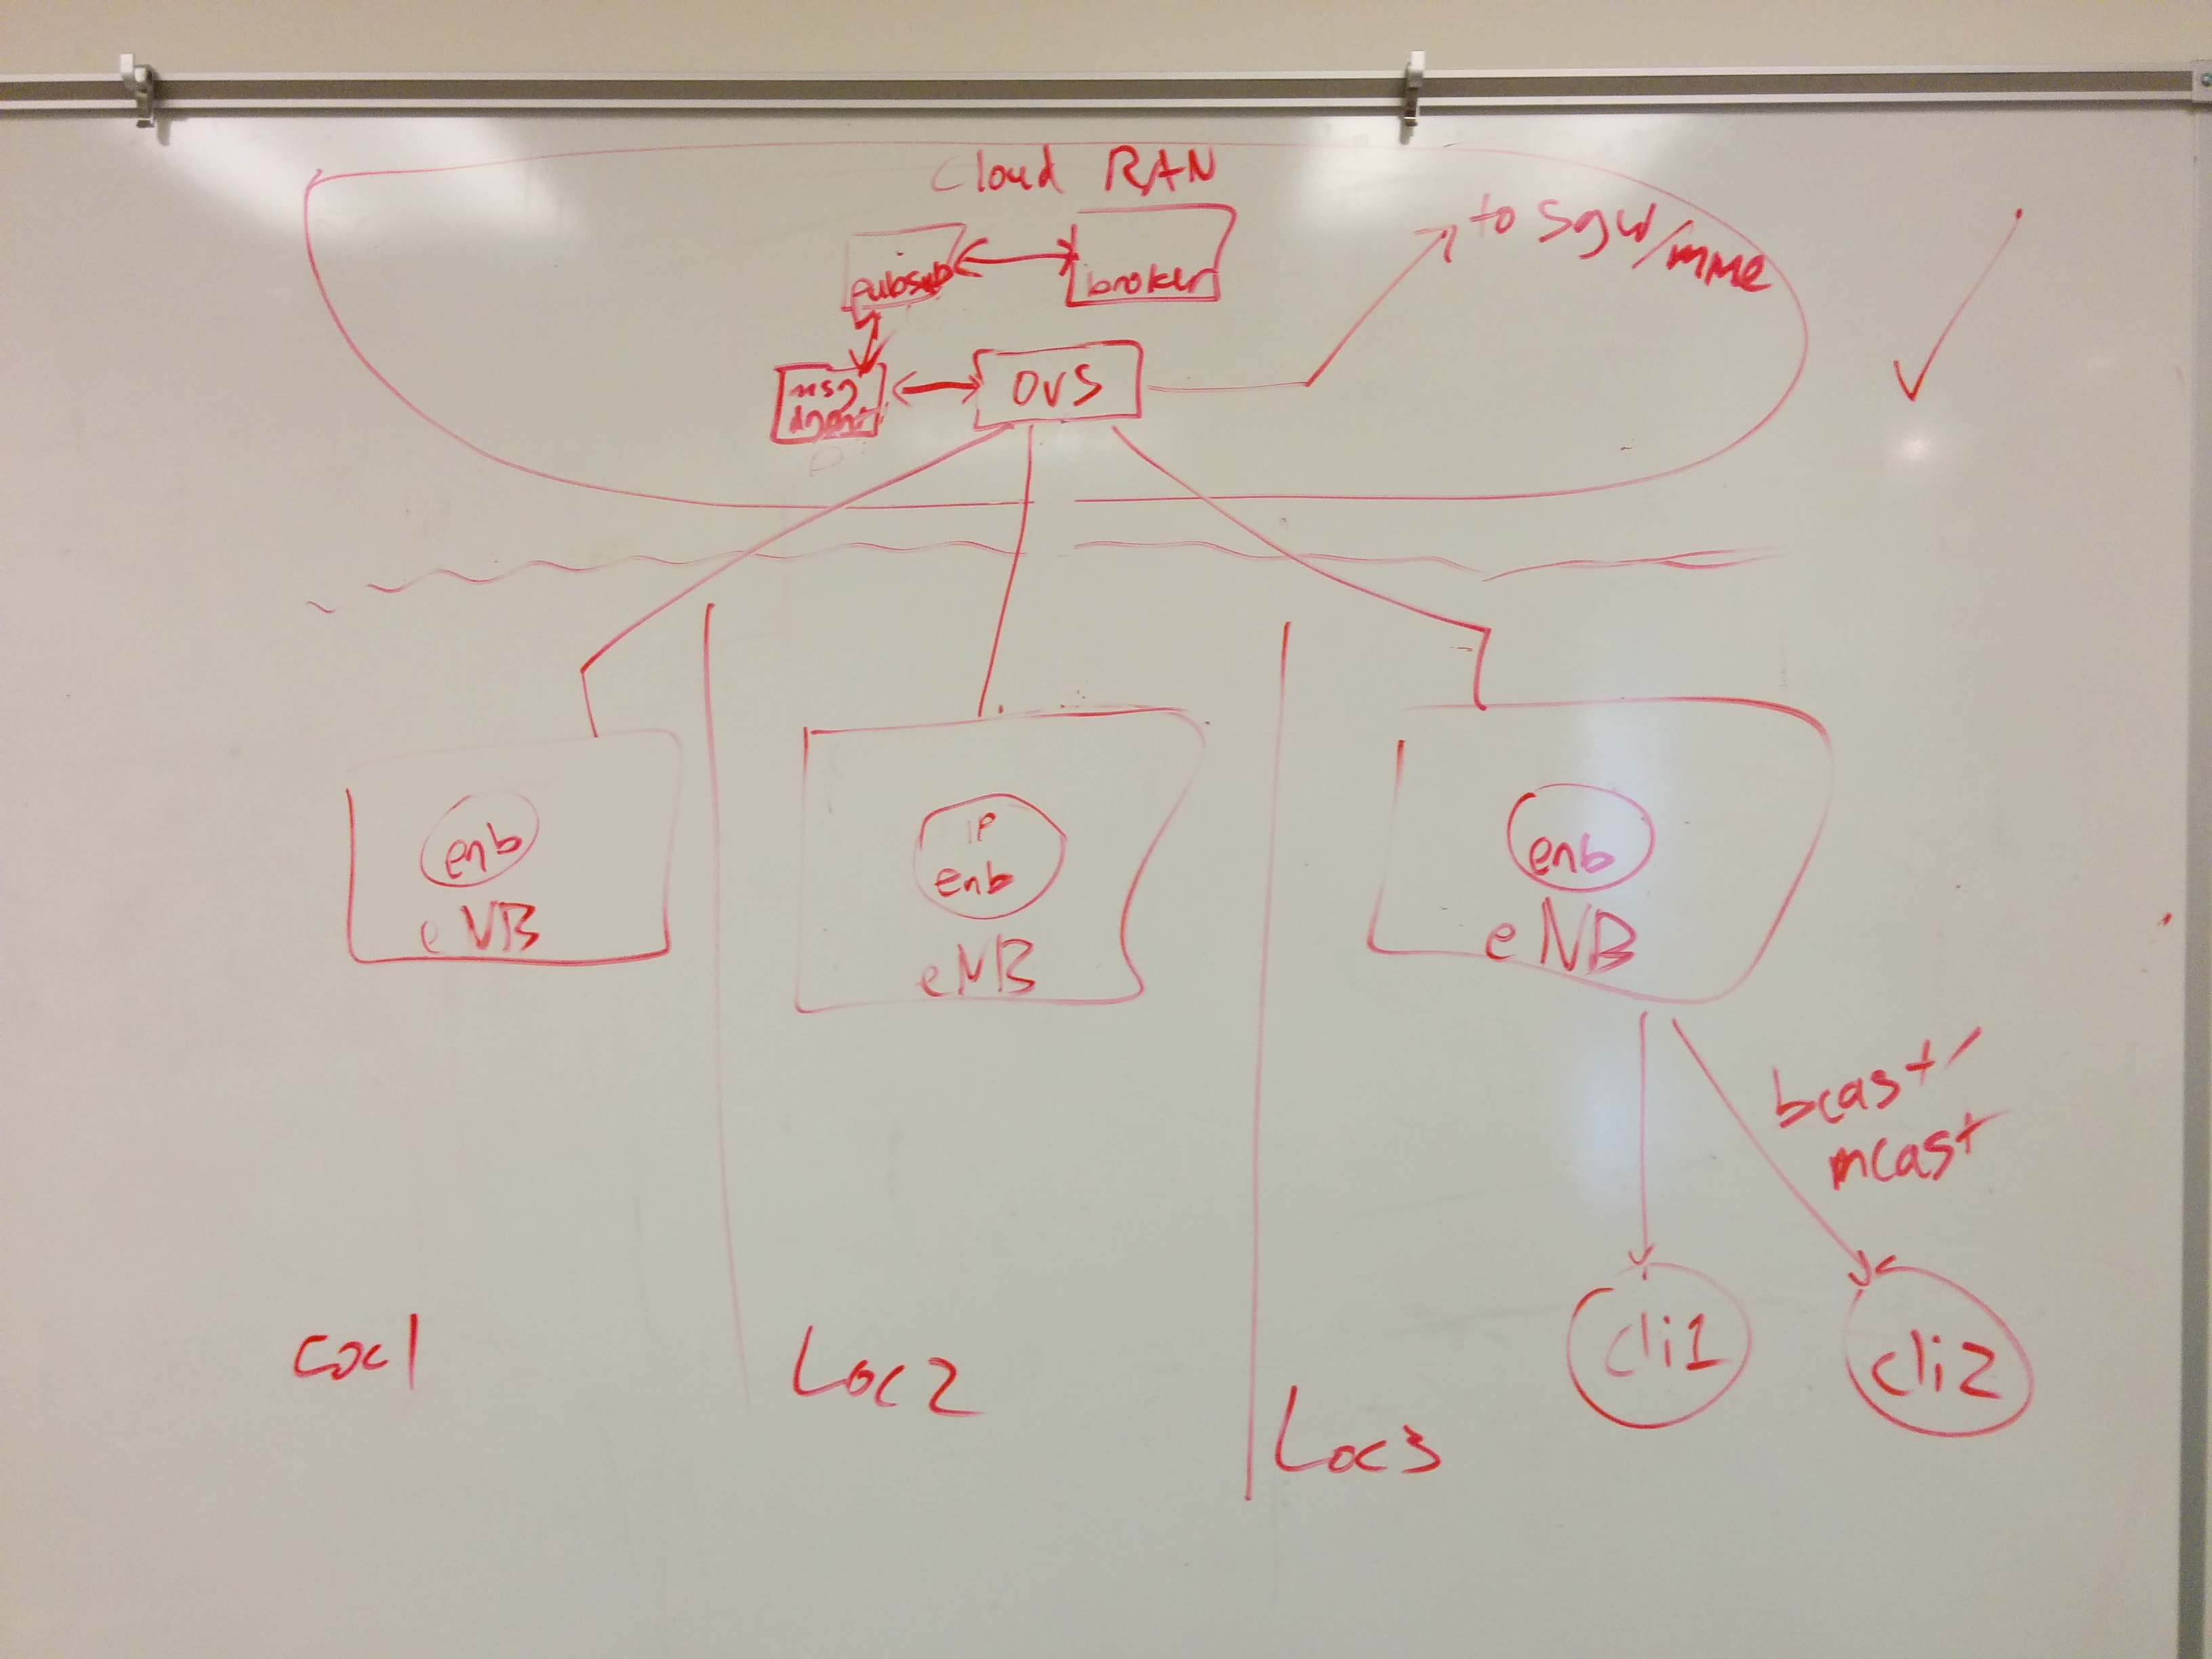 Cloud RAN
to Sgw/mme
pubsub
broker
msg
Agent
OVS
enb
eNB
IP
enb
eNB
enb
eNB
bcast/
mcast
cli1
cli2
Loc1
Loc2
Loc3